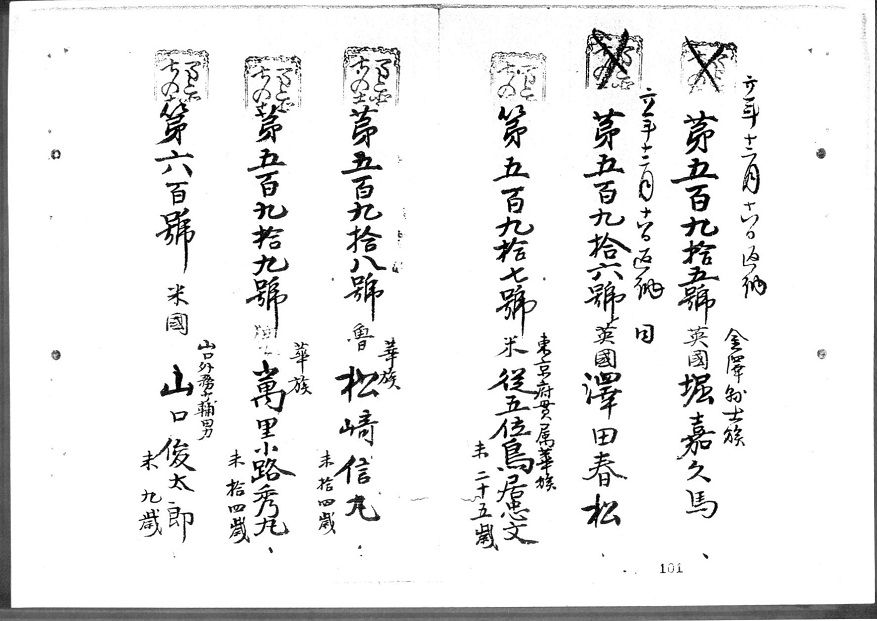 六年十二月十六日返納
金澤縣士族
第五百九拾五號 英國 堀嘉久馬
六年十二月十六日返納
同
第五百九拾六號 英國 澤田春松
東京府貫属華族
第五百九拾七號 米 従五位鳥居忠文
未 二十五歳
華族
第五百九拾八號 魯 松崎信丸
未 拾四歳
華族
第五百九拾九號 萬里小路秀丸
未 拾四歳
山口外務少輔男
第六百號 米國 山口俊太郎
未 九歳
101